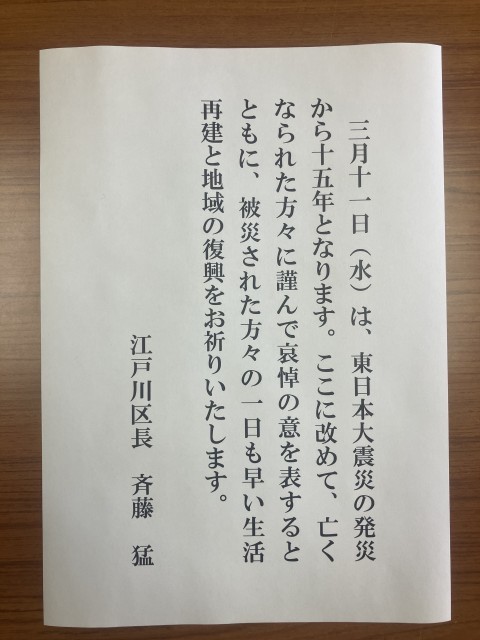 三月十一日（水）は、東日本大震災の発災
から十五年となります。ここに改めて、亡く
なられた方々に謹んで哀悼の意を表すると
ともに、被災された方々の一日も早い生活
再建と地域の復興をお祈りいたします。
江戸川区長　斉藤　猛